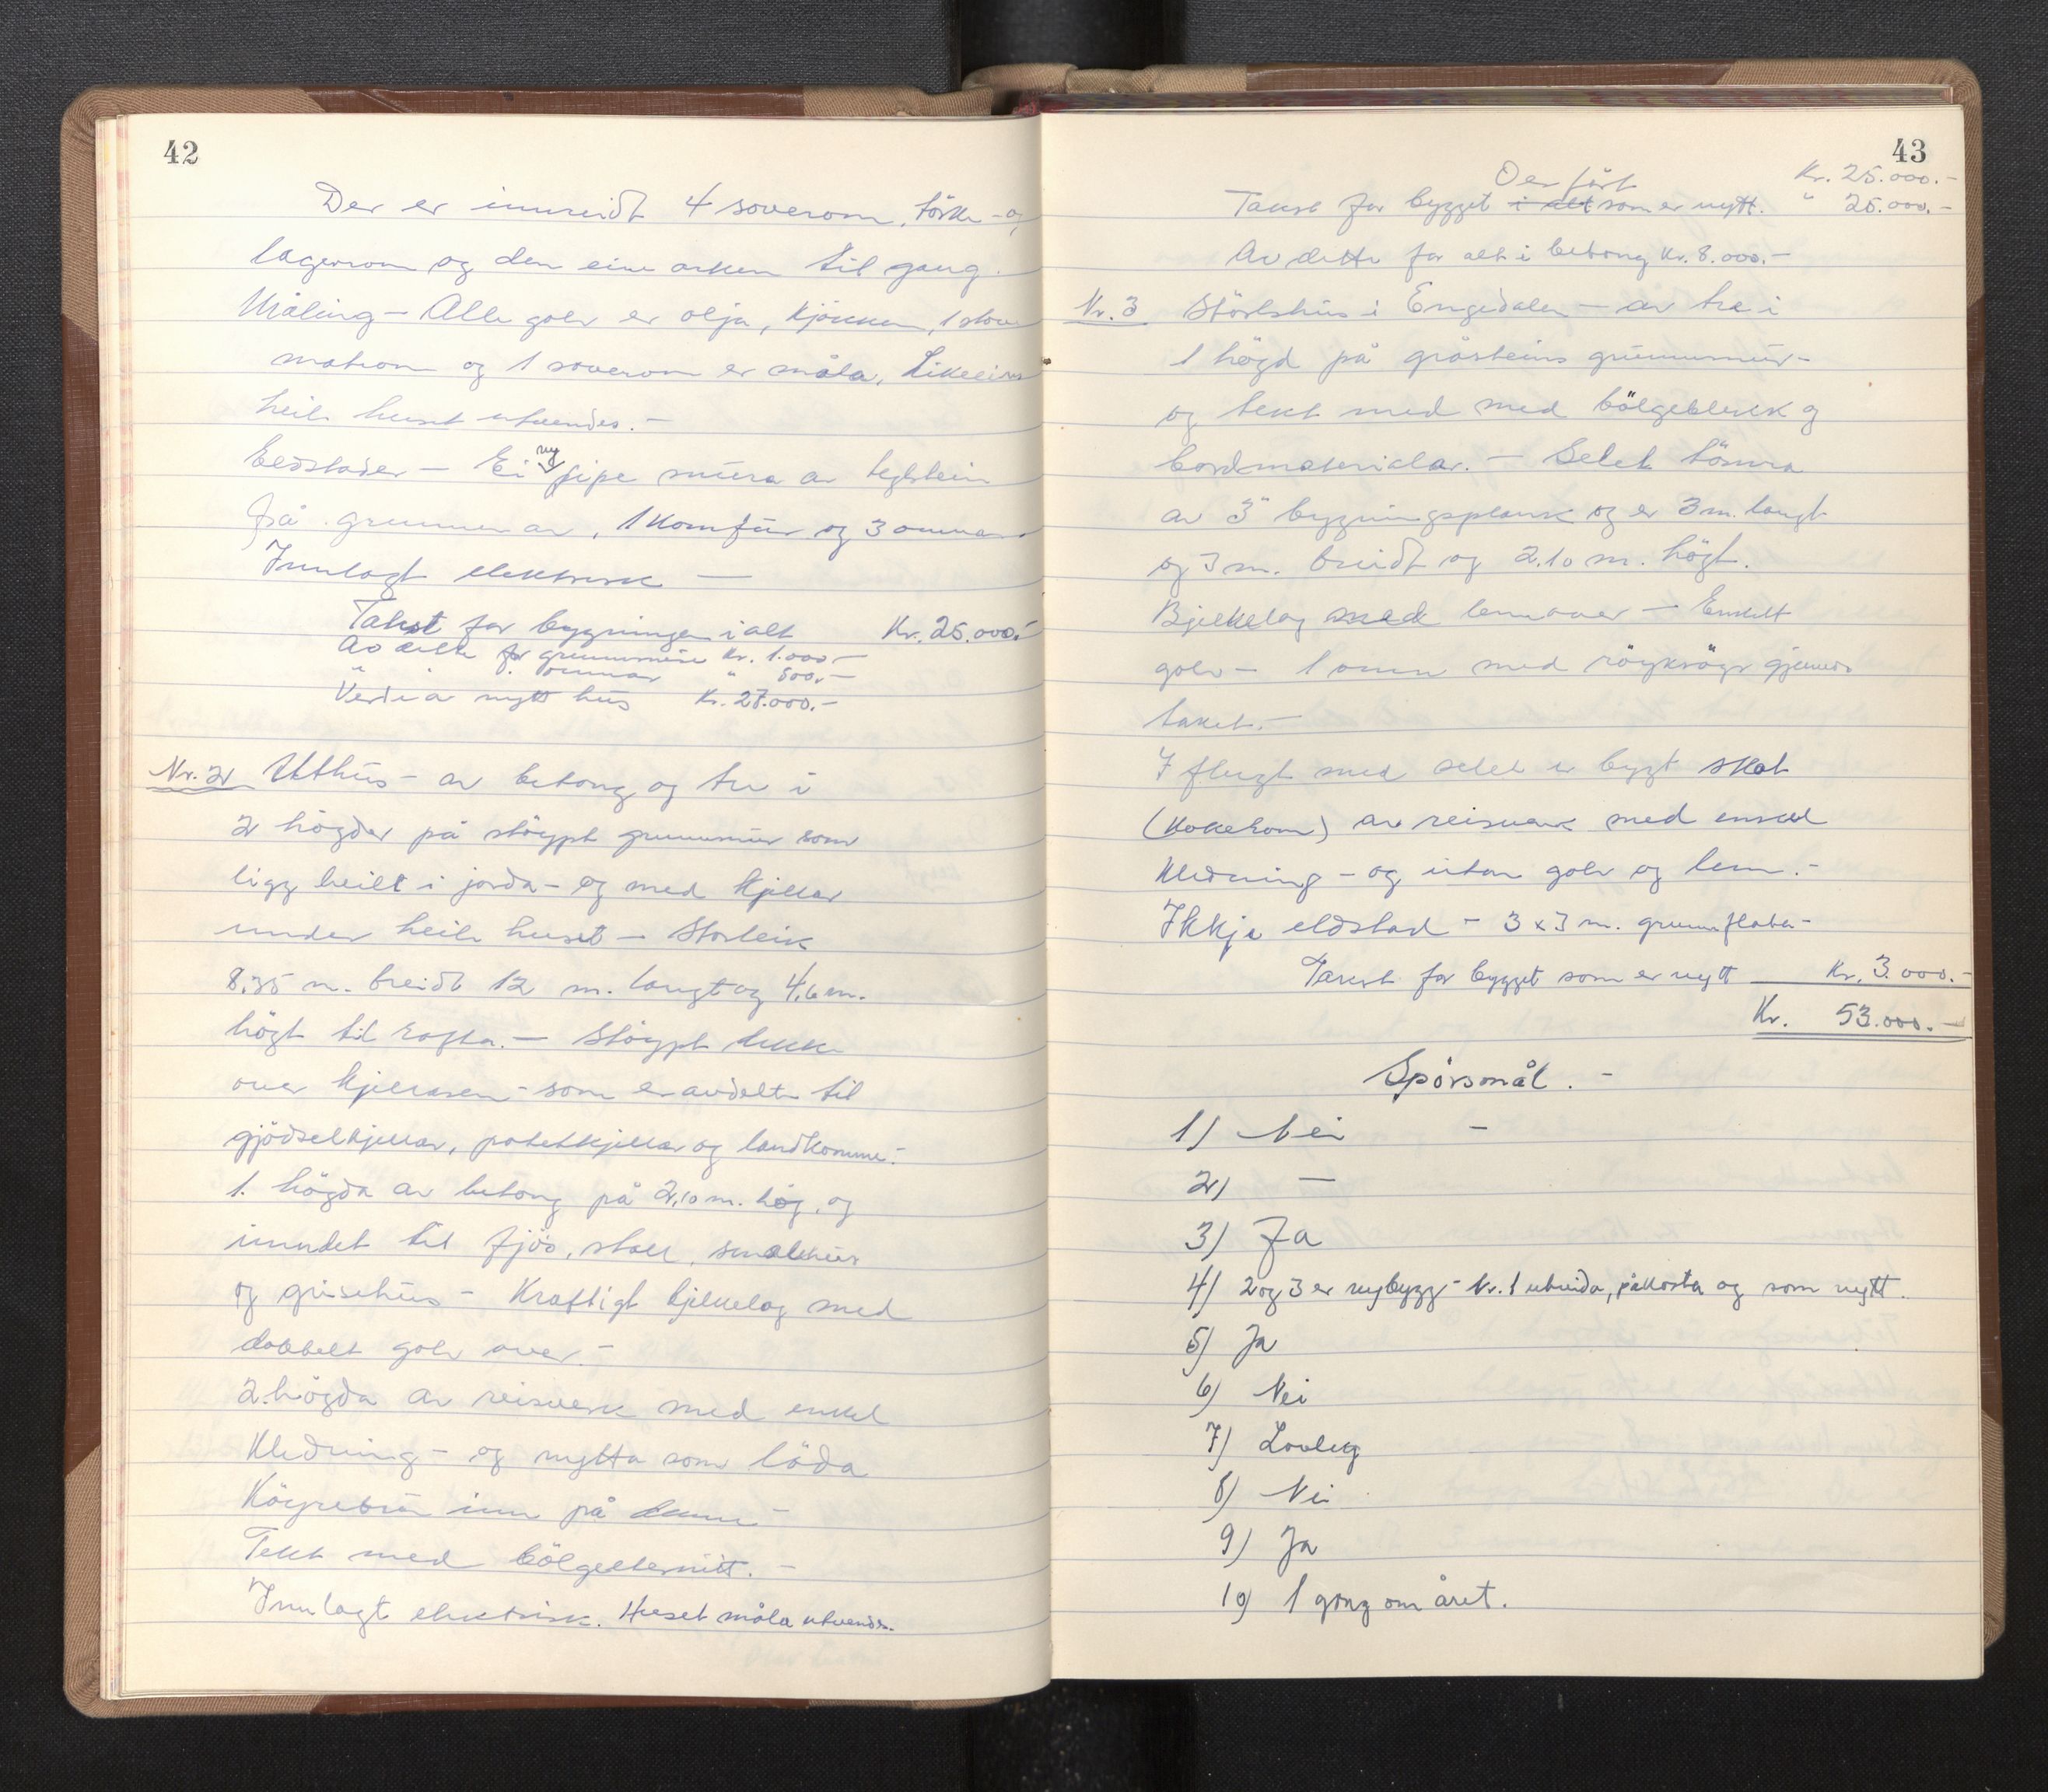 42
Der er innreidt 4 soverom, törke- og
lagerrom og den eine arken til gang.
Måling - Alle golv er olja, kjökken, 1 stove
matrom og 1 soverom er måla, Likeeins
heile huset utvendes. -
Eldstader - Ei ny pipe mura av teglstein
frå grunnen av, 1 komfur og 3 omnar.
Innlagt elektrisk -
Takst for bygningen ialt Kr. 25.000.-
Av dette for grunnmur Kr. 1.000.-
" f. omnar " 500.-
Verdi av nytt hus Kr. 27.000.-
Nr. 2 Uthus - av betong og tre i
2 högder på stöypt grunnmur som
ligg heilt i jorda - og med kjellar
under heile huset - Storleik
8,35 m. breidt 12 m. langt og 4,6 m.
högt til rafta. - Stöypt dekke
over kjellaren - som er avdelt til
gjödselkjellar, potetkjellar og landkomme.-
1. högda av betong på 2,10 m. hög, og
innredet til fjös, stall, smalehus
og grisehus - Kraftigt bjelkelag med
dobbelt golv over. -
2. högda av reisverk med enkel
kledning - og nytta som löda
Köyrebru inn på -
Tekt med bölgeeternitt. -
Innlagt elektrisk. Huset måla utvendes.
43
Overfört Kr. 25.000.-
Takst for bygget i alt som er nytt. " 25.000.-
Av dette for alt i betong Kr. 8.000.-
Nr. 3 Störlshus i Engedalen - av tre i
1 högd på gråsteins grunnmur -
og tekt med med bölgeblekk og
bordmaterialar. - Selet tömra
av 3" bygningsplank og er 3 m. langt
og 3 m. breidt og 2.10 m. högt.
Bjelkelag med lem over - Enkelt
golv - 1 omn med röykröyr gjennom
taket. -
I flugt med selet er bygt skot
(kokerom) av reisverk med enkel
kledning - og utan golv og lem. -
Ikkje eldstad - 3 x 3 m. grunnflate -
Takst for bygget som er nytt Kr. 3.000.-
Kr. 53.000.-
Spörsmål. -
1) Nei -
2) -
3) Ja
4) 2 og 3 er nybygg - Nr. 1 utvida, påkosta og som nytt.
5) Ja
6) Nei
7) Lovleg
8) Nei
9) Ja
10) 1 gong om året.